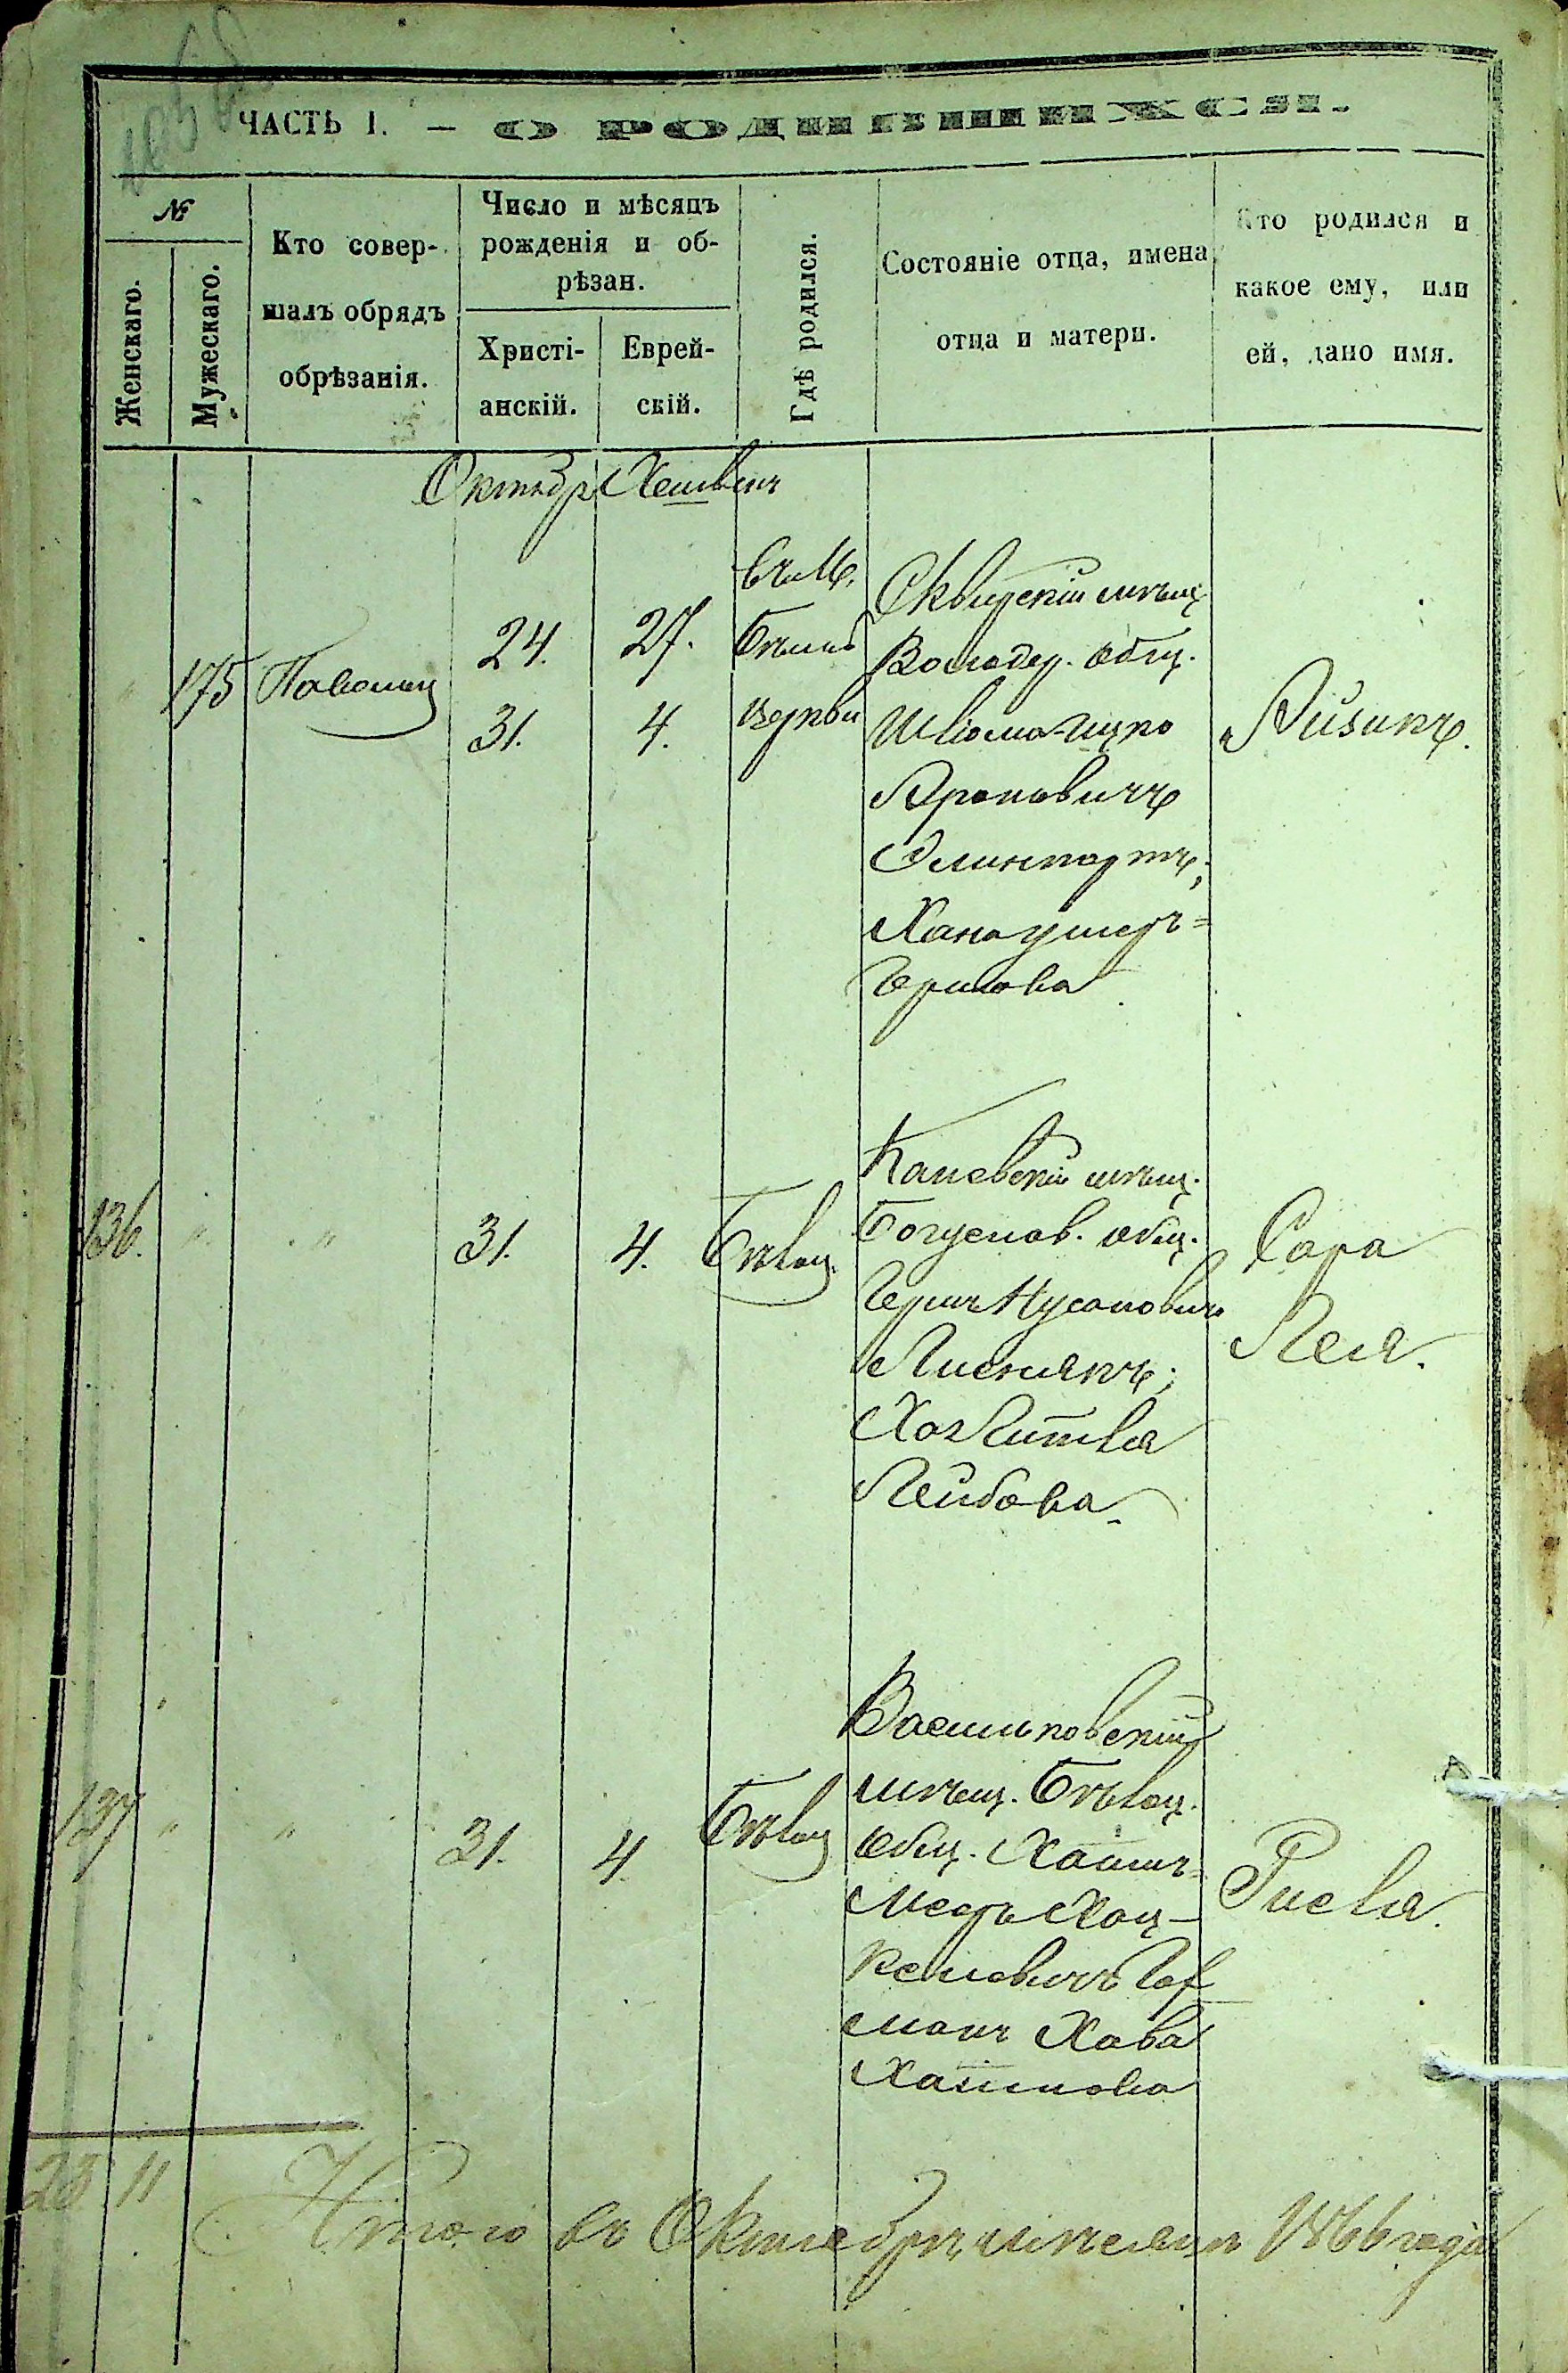 ЧАСТЬ I. — О РОДИВШИХСЯ.
№
Женскаго.
Мужескаго.
Кто совер-
шалъ обрядъ
обрѣзанія.
Число и мѣсяцъ
рожденія и об-
рѣзан.
Христі-
анскій.
Еврей-
скій.
Гдѣ родился.
Состояніе отца, имена
отца и матери.
Кто родился и
какое ему, или
ей, дано имя.
Октябр Хешвенъ
" 175 Паволоц
24. 27.
31. 4.
въ М.
Бѣлой
Церкви
Сквирскій мѣщ.
Володар. общ.
Шліома-Ицко
Ароновичъ
Элинпортъ;
Хана умеръ=
Гершкова
Айзикъ.
136. " " 31. 4. Бѣлоц.
Каневскій мѣщ.
Богуслав. общ.
Гершъ Нусановичъ
Лиснякъ;
Хая Ципля
Лейбова.
Сара
Лея.
137 " " 31. 4. Бѣлоц
Васильковскій
мѣщ. Бѣлоц.
общ. Хаимъ=
Меер Хац-
келевичъ Гоф
манъ Хава
Хаимова
Рисля.
23 11 Итого въ Октябрѣ мѣсяцѣ 1866 года